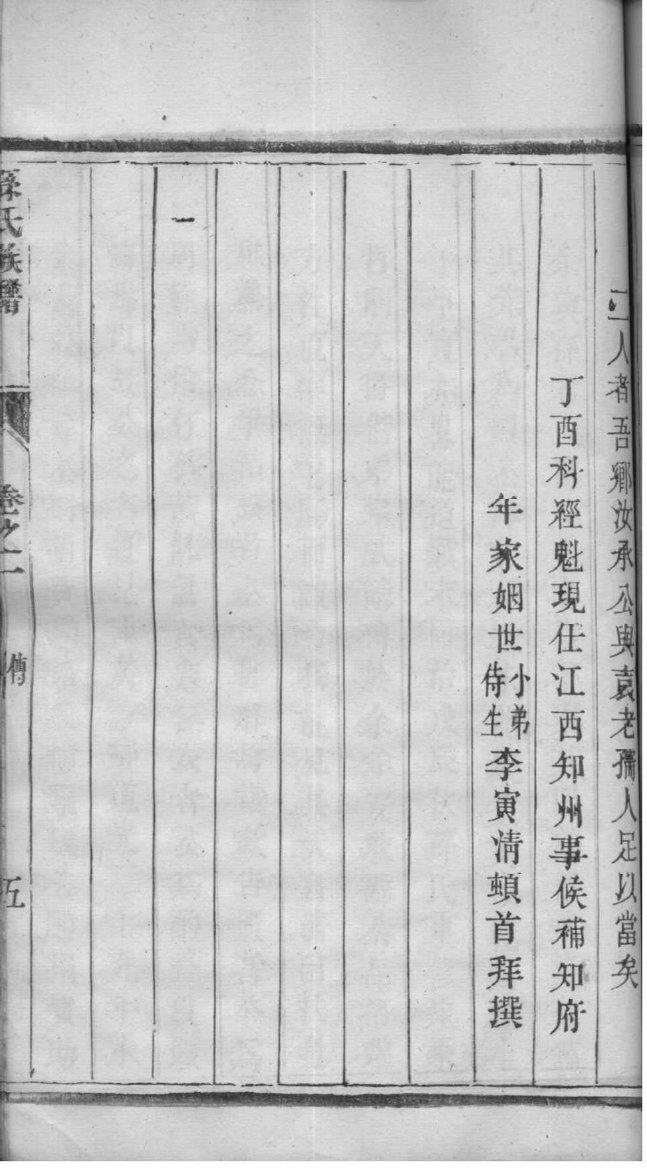 二人者吾鄉汝承公與袁老孺人足以當矣
丁酉科經魁現任江西知州事候補知府
年家姻世小弟侍生李寅清頓首拜撰
孫氏族譜 卷之二 傳 五